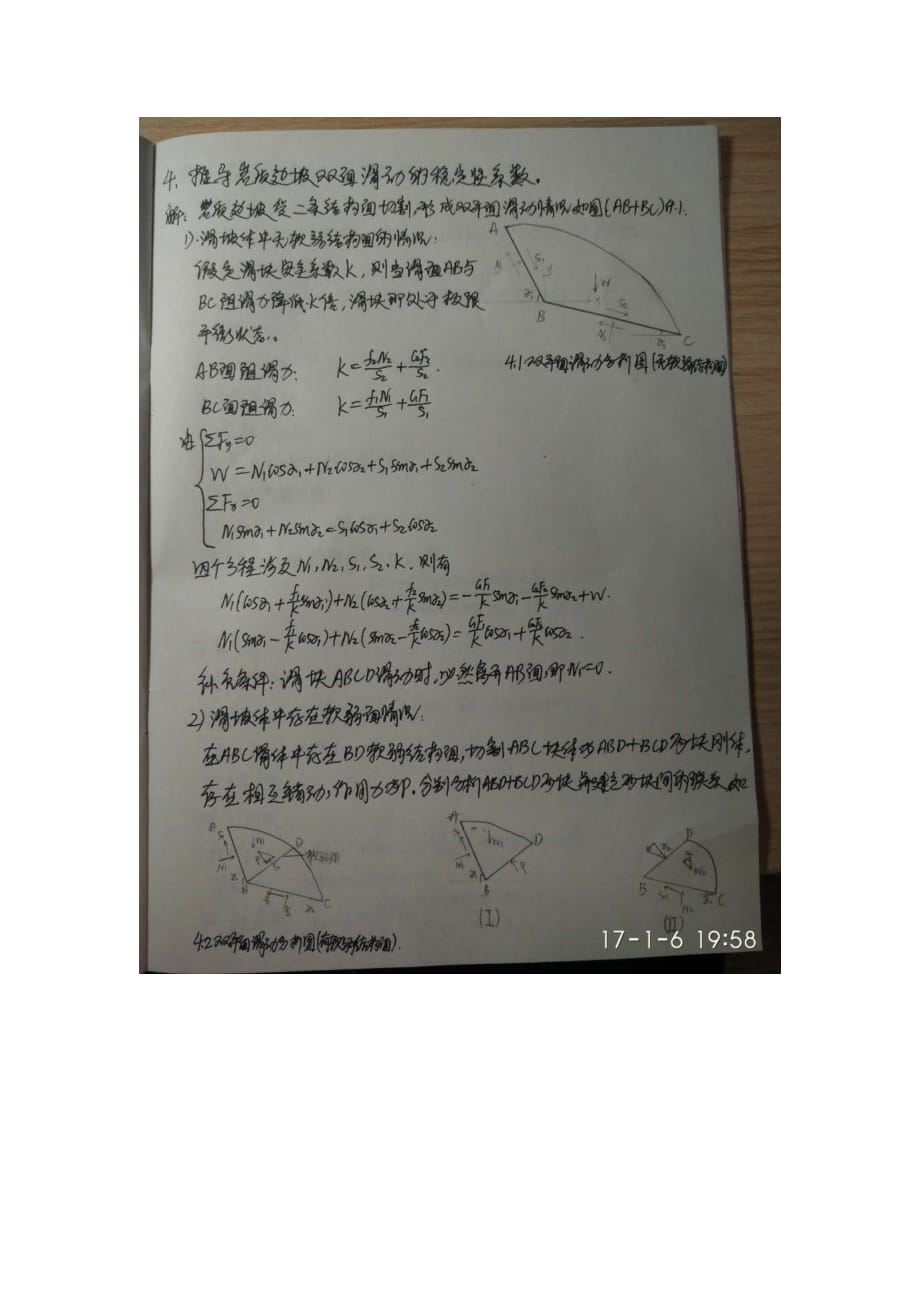 4. 推导岩质边坡双面滑动的稳定性系数。
解: 岩质边坡受二条结构面切割,形成双平面滑动情况如图(AB+BC)4.1.
1)·滑坡体中无软弱结构面的情况:
假定滑块安全系数K, 则当滑面AB与
BC阻滑力降低K倍, 滑块即处于极限
平衡状态。
AB面阻滑力: K=f₂N₂/S₂+C₂F₂/S₂.
BC面阻滑力: K=f₁N₁/S₁+C₁F₁/S₁
由 ΣFy=0
W=N₁cosα₁+N₂cosα₂+S₁sinα₁+S₂sinα₂
ΣFx=0
N₁sinα₁+N₂sinα₂=S₁cosα₁+S₂cosα₂
四个方程涉及N₁,N₂,S₁,S₂,K. 则有
N₁(cosα₁+f₁/K sinα₁)+N₂(cosα₂+f₂/K sinα₂)=-C₁F₁/K sinα₁-C₂F₂/K sinα₂+W.
N₁(sinα₁-f₁/K cosα₁)+N₂(sinα₂-f₂/K cosα₂)=C₁F₁/K cosα₁+C₂F₂/K cosα₂.
补充条件: 滑块ABCD滑动时, 必然离开AB面,即N₁=0.
2) 滑坡体中存在软弱面情况:
在ABC滑体中存在BD软弱结构面,切割ABC块体为ABD+BCD两块刚体,
存在相互错动,作用力为P. 分别分析ABD+BCD两块并建立两块间的联系 如
A
N₁
S₁
y
W
x
S₂
α₁
B
N₂
α₂
C
4.1 双平面滑动分析图(无软弱结构面)
A
S₁
W₁
D
软弱面
N₁
P
S
α₁
B
α₂
C
4.2 双平面滑动分析图(有软弱结构面).
A
S₁
W₁
D
N₁
P
α₁
B
(I)
D
W₂
B
S₂
N₂
α₂
C
(II)
17-1-6 19:58